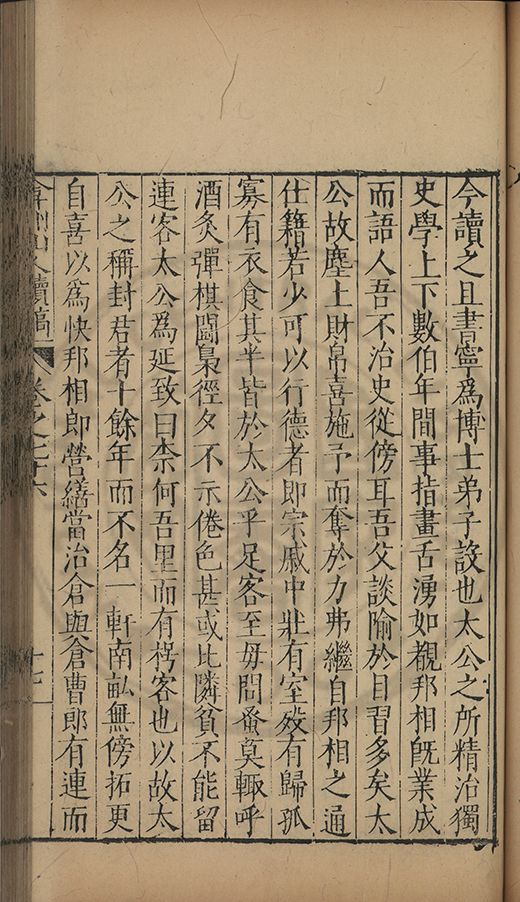 今讀之且書寧爲博士弟子設也太公之所精治獨
史學上下數伯年間事指畫舌湧如覩邦相旣業成
而語人吾不治史從傍耳吾父談隃於日習多矣太
公故塵土財帛喜施予而奪於力弗繼自邦相之通
仕籍若少可以行德者即宗戚中壯有室歿有歸孤
寡有衣食其半皆於太公乎足客至毋問蚤莫輙呼
酒炙彈棋鬪梟徑夕不示倦色甚或比隣貧不能留
連客太公爲延致曰柰何吾里而有枵客也以故太
公之稱封君者十餘年而不名一軒南畝無傍拓更
自喜以爲快邦相即營繕當治倉與倉曹郎有連而
弇州山人續稿 卷之 十六 十七